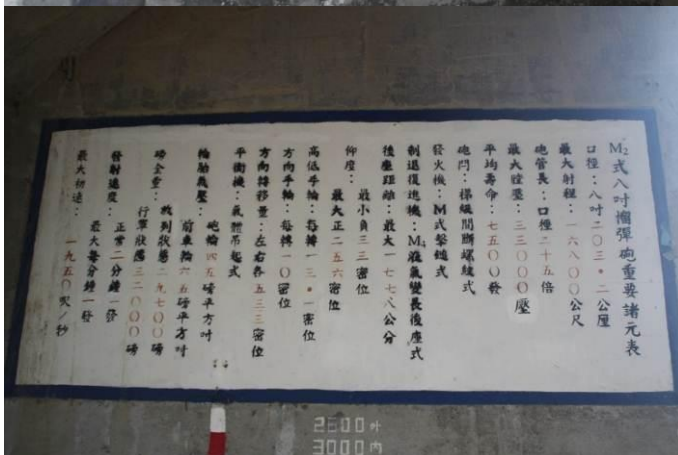 M2式八吋榴彈砲重要諸元表
口徑：八吋二〇三•二公厘
最大射程：一六八〇〇公尺
砲管長：口徑二十五倍
最大膛壓：三三〇〇〇壓
平均壽命：七五〇〇發
砲閂：梯級間斷螺紋式
發火機：M式擊鎚式
制退復進機：M4液氣變長後座式
後座距離：最大一七七八公分
仰度：最小負三三密位
最大正二五六密位
高低手輪：每轉一三•一密位
方向手輪：每轉一〇密位
方向轉移量：左右各五三三密位
平衡機：氣體吊起式
輪胎氣壓：砲輪四五磅平方吋
前車輪六五磅平方吋
砲全重：放列狀態二九七〇〇磅
行軍狀態三二〇〇〇磅
發射速度：正常二分鐘一發
最大每分鐘一發
最大初速：一九五〇呎/秒
2800外
3000內